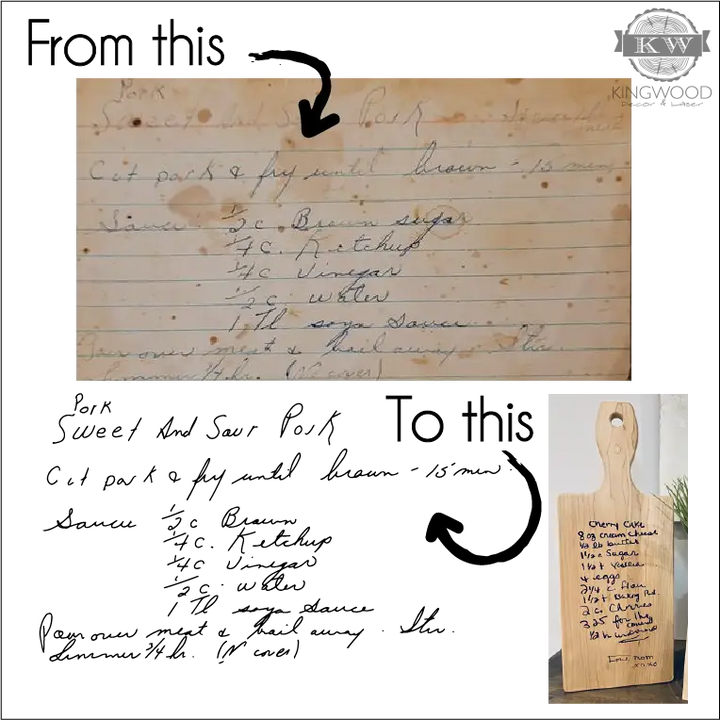 From this
KW
KINGWOOD
Decor & Laser
Pork
Sweet And Sour Pork
Cut pork & fry until brown - 15 min
Sauce 1/2 c. Brown sugar
1/4 c. Ketchup
1/4 c Vinegar
1/2 c. water
1 Tl soya Sauce
Pour over meat & boil away. Stir.
Simmer 3/4 hr. (No cover)
To this
Pork
Sweet And Sour Pork
Cut pork & fry until brown - 15 min.
Sauce 1/2 c Brown
1/4 c. Ketchup
1/4 c Vinegar
1/2 c. water
1 Tl soya Sauce
Pour over meat & boil away. Stir.
Simmer 3/4 hr. (N cover)
Cherry Cake
8 oz cream cheese
1/2 lb butter
1 1/2 c Sugar
1 1/2 t Vanilla
4 eggs
2 1/4 c flour
1 1/2 t Baking Pd.
2 c. Cherries
325 for 1 hr
Love Mom
xoxo